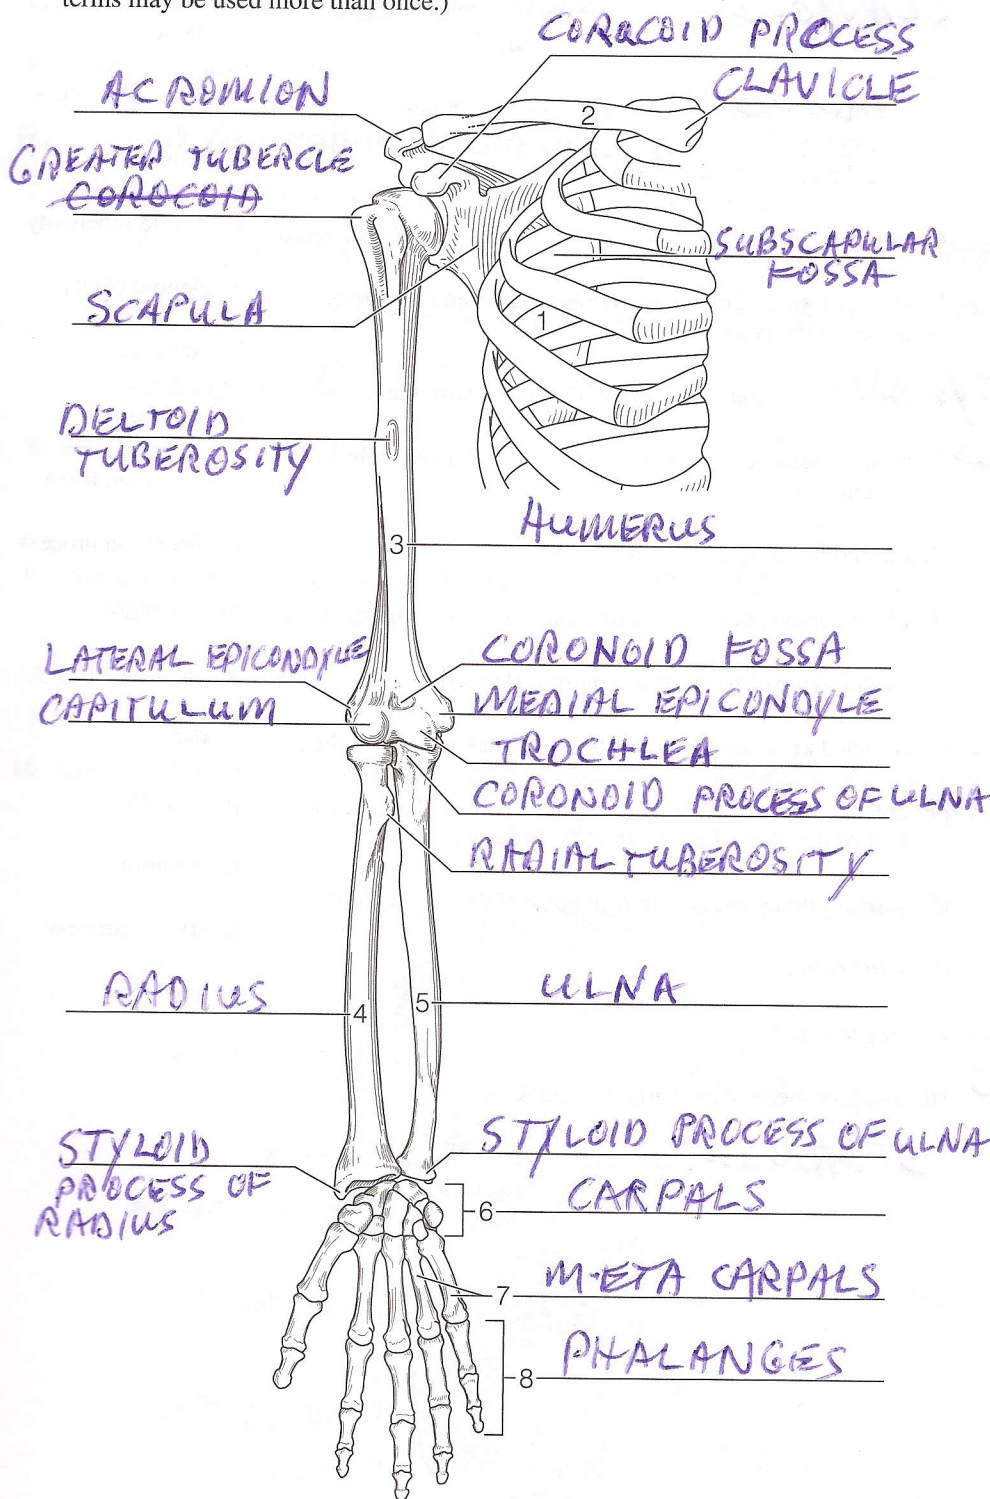 terms may be used more than once.)
COROCOID PROCESS
ACROMION
CLAVICLE
2
GREATER TUBERCLE
COROCOID
SUBSCAPULAR
FOSSA
SCAPULA
1
DELTOID
TUBEROSITY
HUMERUS
3
LATERAL EPICONDYLE
CORONOID FOSSA
CAPITULUM
MEDIAL EPICONDYLE
TROCHLEA
CORONOID PROCESS OF ULNA
RADIAL TUBEROSITY
RADIUS
4
5
ULNA
STYLOID
PROCESS OF
RADIUS
STYLOID PROCESS OF ULNA
6
CARPALS
7
META CARPALS
8
PHALANGES